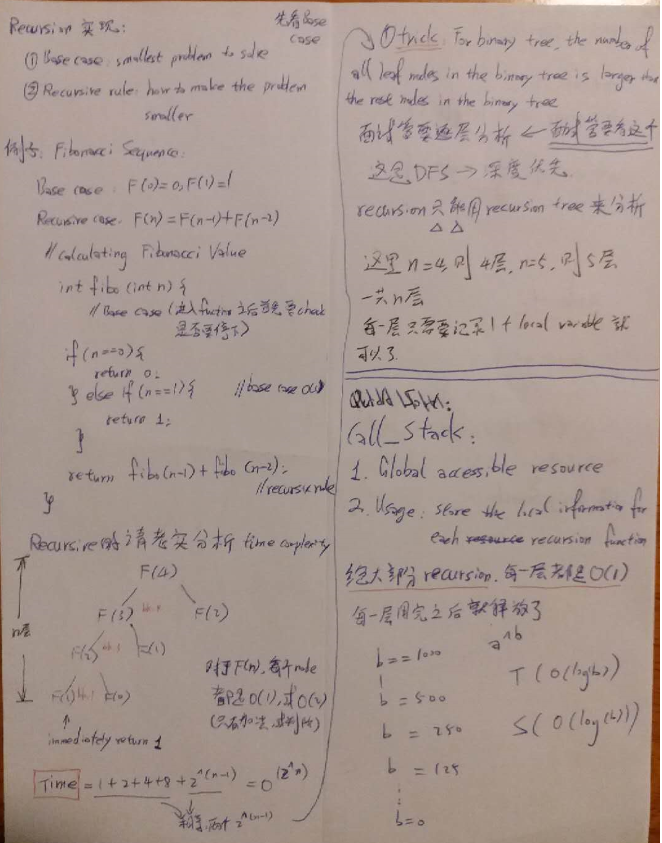 Recursion 实现:
先看Base case
① Base case: smallest problem to solve
② Recursive rule: how to make the problem
smaller
例子: Fibonacci Sequence:
Base case: F(0)=0, F(1)=1
Recursive case: F(n)=F(n-1)+F(n-2)
// calculating Fibonacci Value
int fibo (int n) {
// Base case (进入 之后首先要check
是否要停了)
if (n==0) {
return 0;
} else if (n==1) { // base case O(1)
return 1;
}
return fibo(n-1) + fibo (n-2);
// recursive rule
}
Recursive的请老实分析 time complexity
F(4)
F(3) F(2)
n层
F(2) F(1)
F(1) F(0)
对于F(n), 每个node
都是O(1), 或O(2)
immediately return 1
Time = 1+2+4+8+2^(n-1) = O(2^n)
2^(n-1)
① trick: For binary tree, the number of
all leaf nodes in the binary tree is larger than
the rest nodes in the binary tree
面试官要逐层分析 ← 面试官要看这个
这是DFS → 深度优先
recursion 只能用 recursion tree 来分析
△ △
这里 n=4, 则 4层, n=5, 则 5层
一共n层
每一层只需要记录 1 + local variable 就
可以了
Call_Stack:
1. Global accessible resource
2. Usage: store the local information for
each recursion function
绝大部分 recursion, 每一层都是 O(1)
每一层用完之后就释放了
b == 1000 a^b
b = 500 T(O(log(b)))
b = 250 S(O(log(b)))
b = 125
⋮
b=0